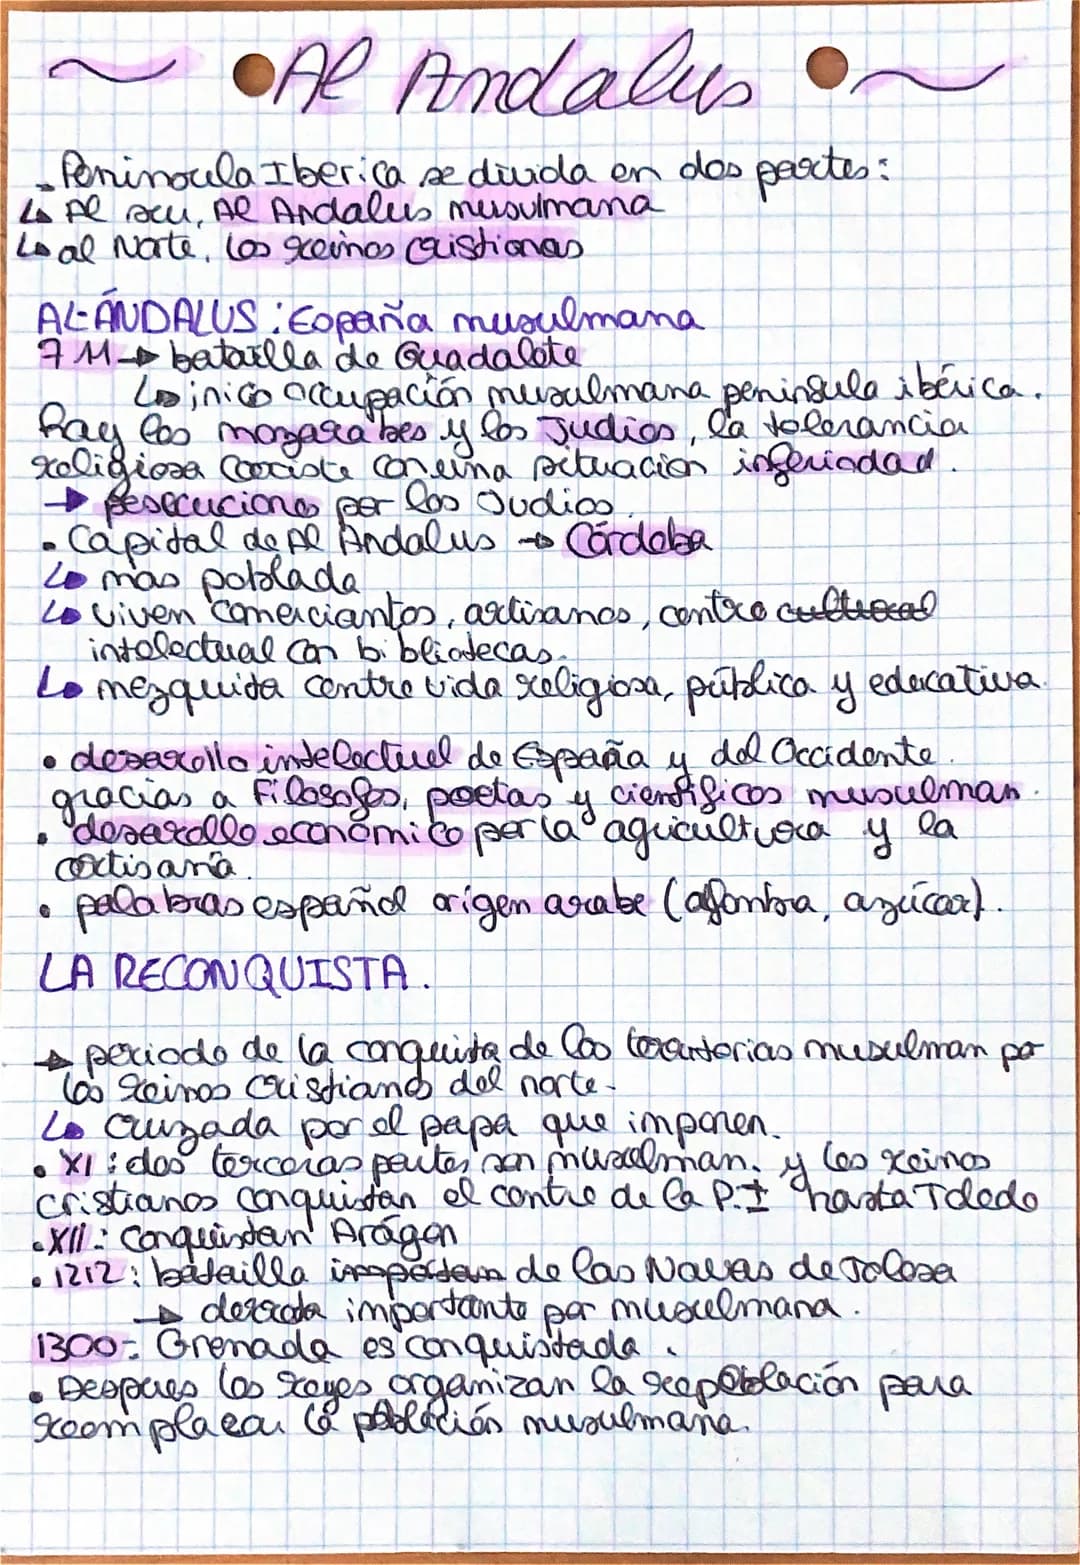 Al Andalus
- Peninsula Iberica se divida en dos partes :
↳ Al sur, Al Andalus musulmana
↳ al Norte, los reinos cristianos
AL-ÁNDALUS : España musulmana
711 → batailla de Guadalete
↳ inico occupación musulmana peninsula ibérica.
Hay los mozarabes y los Judios, la tolerancia
religiosa coexiste con una situacion inferiodad.
→ persecuciones por los Judios.
• Capital de Al Andalus → Córdoba
↳ mas poblada
↳ viven comerciantos, artisanos, centro cultural
intelectual con bibliotecas.
↳ mezquita centro vida religiosa, pública y educativa.
• desarollo intelectuel de España y del Occidente.
gracias a filosofos, poetas y cientificos musulman.
• desarollo económico por la agricultura y la
artisanía.
• palabras español origen arabe (alfombra, azúcar).
LA RECONQUISTA.
→ periodo de la conquista de los territorios musulman por
los reinos cristianos del norte.
↳ cruzada por el papa que imponen.
• XI : dos terceras partes son musulman. y los reinos
cristianos conquistan el centro de la P.I hasta Toledo
• XII : conquistan Arágon
• 1212 : batailla importan de las Navas de Tolosa
→ derrota importante por musulmana.
1300 : Grenada es conquistada.
• Despues los reyes organizan la repoblación para
reemplazar la población musulmana.